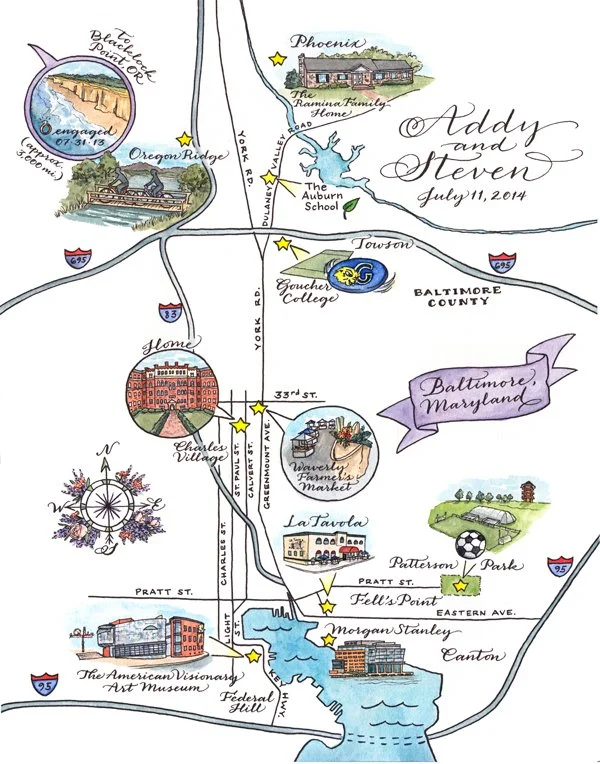 to
Blacklock
Point, OR
engaged
07·31·13
(approx.
3,000 mi.)
Phoenix
The
Ramina Family
Home
Addy
and
Steven
July 11, 2014
Oregon Ridge
YORK RD.
DULANEY VALLEY ROAD
The
Auburn
School
695
Towson
695
G
Goucher
College
BALTIMORE
COUNTY
83
YORK RD.
Home
33rd ST.
Baltimore,
Maryland
Charles
Village
ST. PAUL ST.
CALVERT ST.
GREENMOUNT AVE.
Waverly
Farmer's
Market
N
W
E
S
CHARLES ST.
La Tavola
Patterson Park
95
PRATT ST.
PRATT ST.
Fell's Point
EASTERN AVE.
LIGHT ST.
Morgan Stanley
Canton
The American Visionary
Art Museum
Federal
Hill
KEY HWY
95